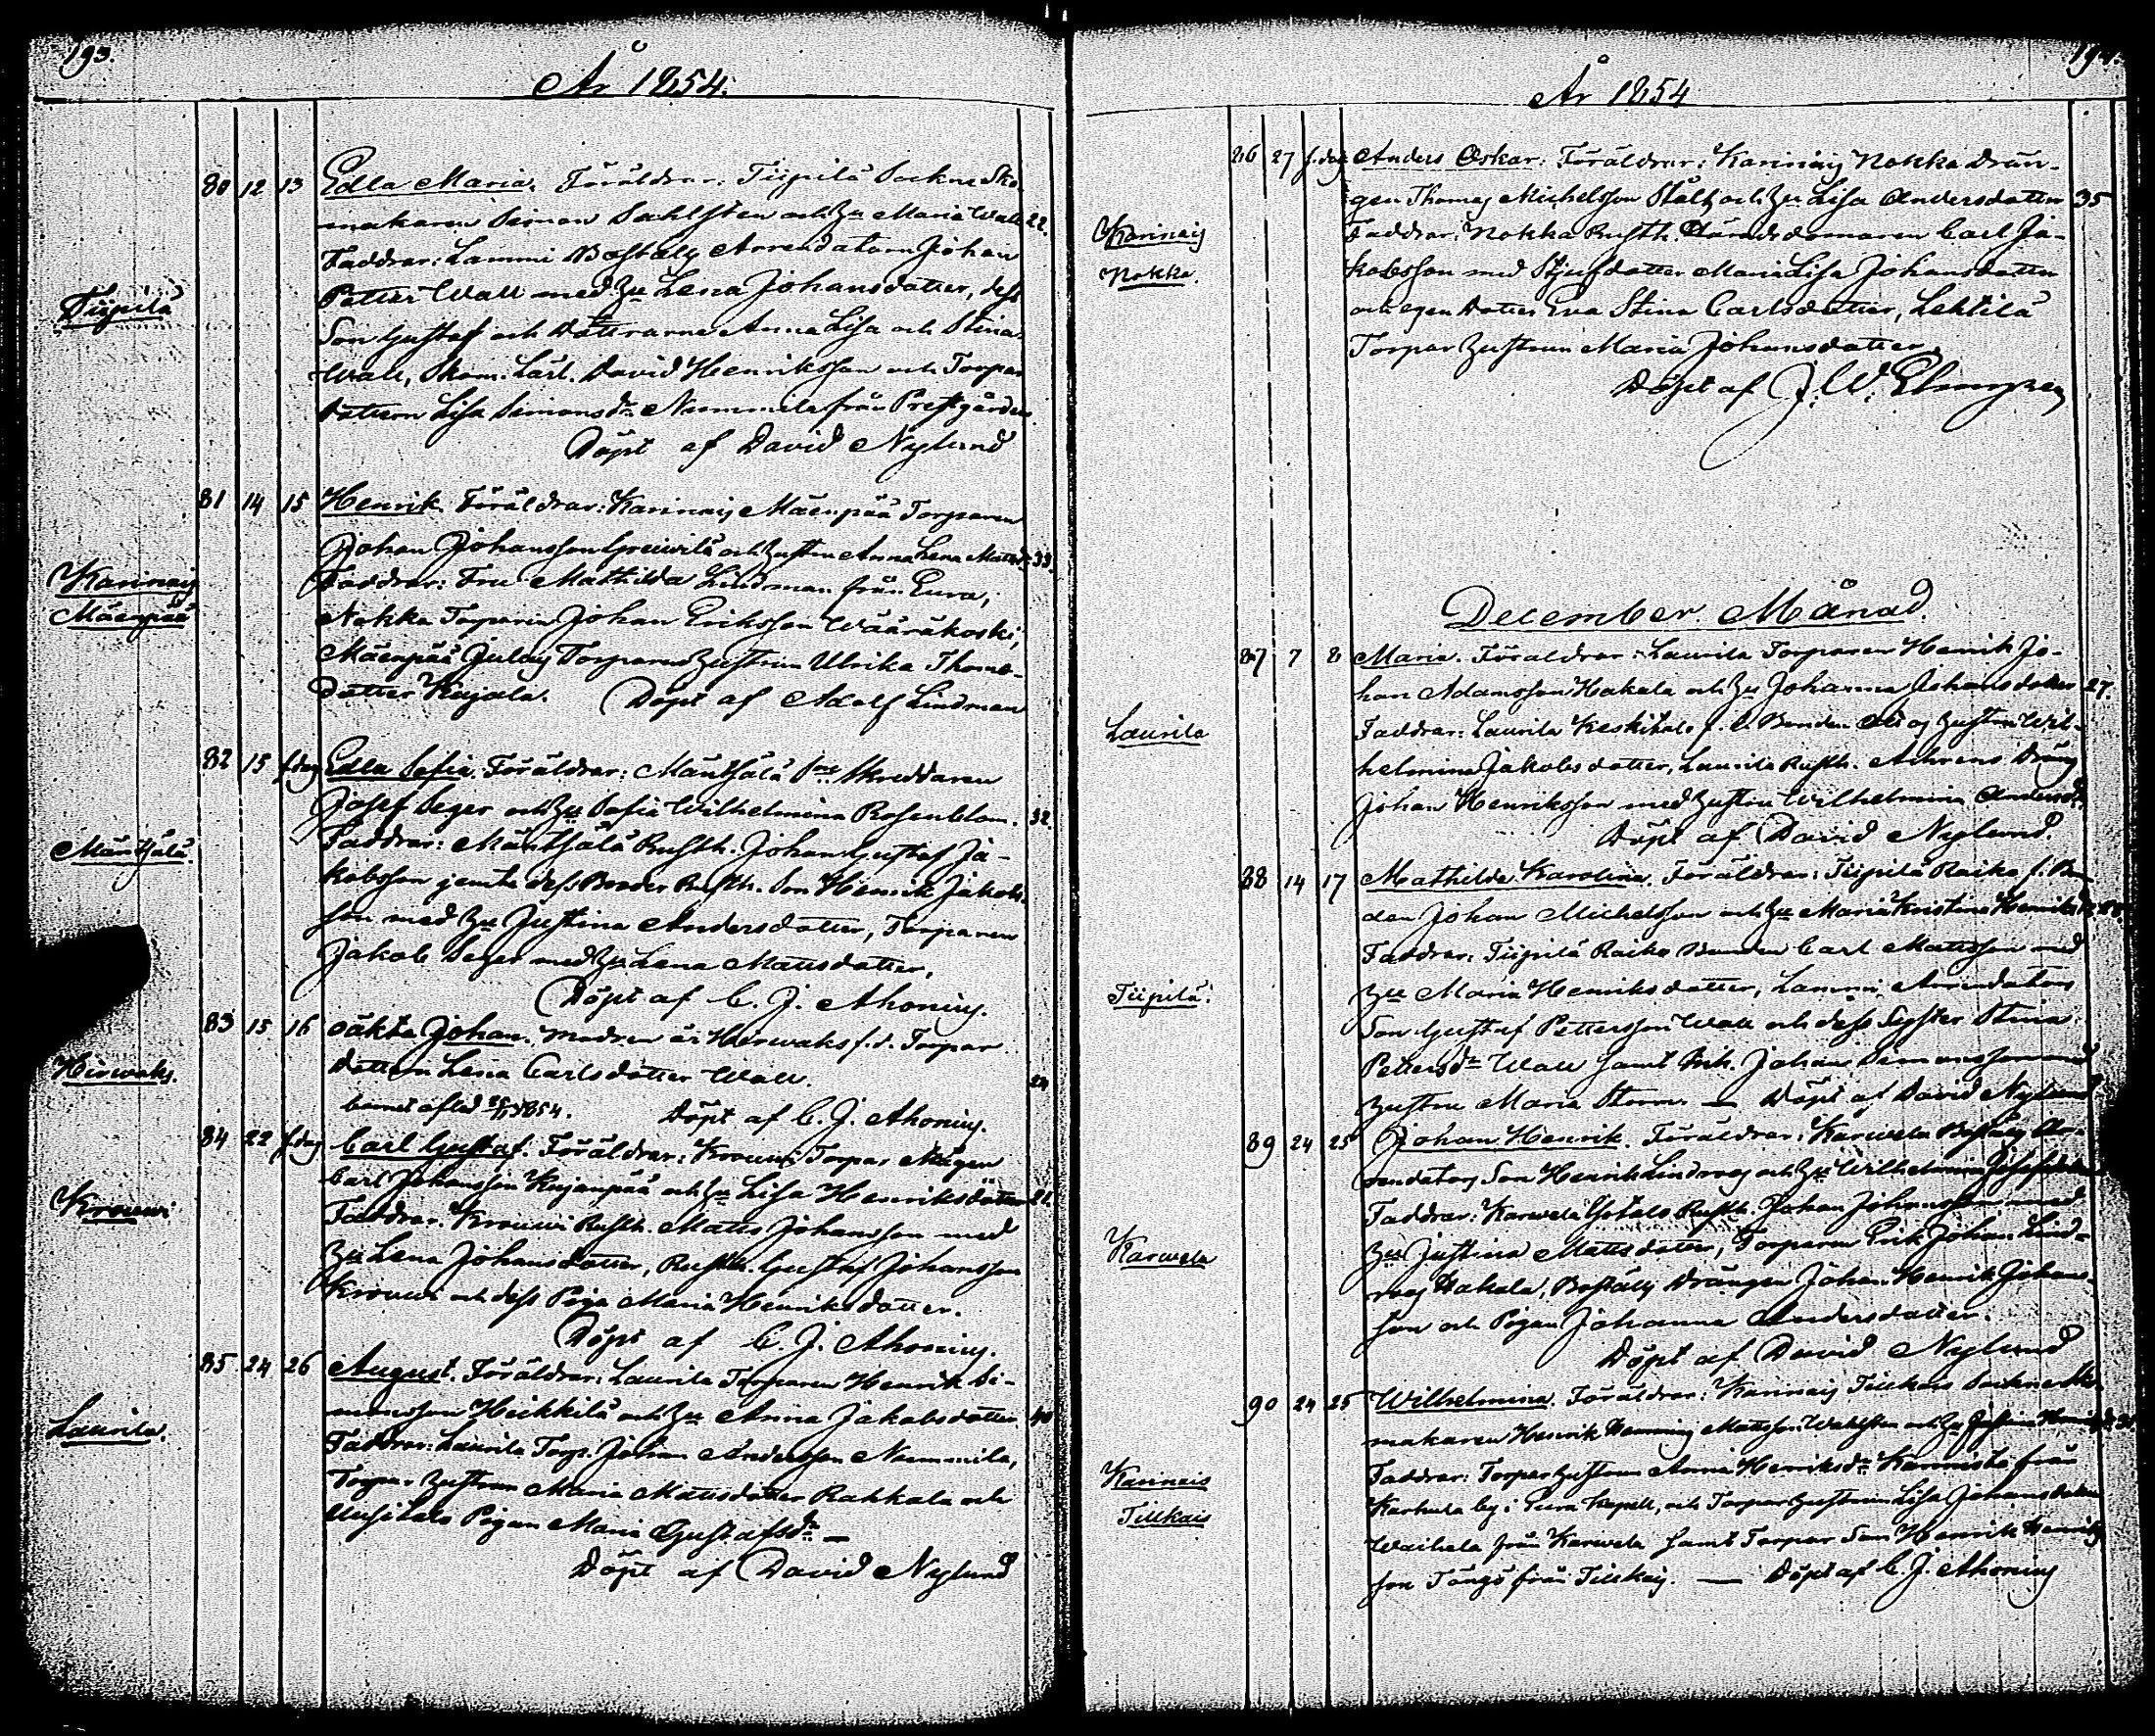 193.
År 1854.
80 12 13 Edla Maria. Föräldrar: Tiipilä Sockne Sko-
makaren Simon Sahlsten och Hu Maria Wall 22.
Faddrar: Lammi Boställs Arrendatorn Johan
Petter Wall med Hu Lena Johansdotter, dess
Tiipilä
Son Gustaf och Döttrarne Anna Lisa och Stina
Wall, Skom. Lärl. David Henriksson och Torpar
dottern Lisa Simonsdr Nummila från Prestgården
Döpt af David Nylund
81 14 15 Henrik. Föräldrar: Karinais Mäenpää Torparen
Johan Johansson och Hustrun Anna Lena Mattsdr 33.
Karinais
Faddrar: Fru Mathilda Lindman från Eura,
Mäenpää
Nokka Torparen Johan Eriksson Wääräkoski,
Mäenpää Torparens Hustrun Ulrika Thoma-
dotter Kujala. Döpt af Adolf Lindman
82 15 s.dag Edla Sofia. Föräldrar: Mäntsälä Skreddaren
Josef Seger och Hu Sofia Wilhelmina Rosenblom. 32.
Mäntsälä
Faddrar: Mäntsälä Rusth. Johan Gustaf Ja-
kobsson jemte dess Broder Rusth. Son Henrik Jakobs-
son med Hu Justina Andersdotter, Torparen
Jakob Seger med Hu Lena Mattsdotter.
Döpt af C. J. Ahonius.
83 15 16 oäkta Johan. Modren är Hirwoks f.d. Torpar
Hirwoks.
dottern Lena Carlsdotter Wall. 24
barnet aflad 1854. Döpt af C. J. Ahonius.
84 22 s.dag Carl Gustaf. Föräldrar: Krouwi Torpar Mågen
Krouwi
Carl Johansson Kujanpää och Hu Lisa Henriksdotter 21.
Faddrar: Krouwi Rusth. Matts Johansson med
Hu Lena Johansdotter, Rusth. Gustaf Johansson
Krouwi och dess Piga Maria Henriksdotter.
Döpt af C. J. Ahonius.
85 24 26 August. Föräldrar: Laurila Torparen Henrik Si-
Laurila.
monsson Heikkilä och Hu Anna Jakobsdotter. 40
Faddrar: Laurila Torp. Johan Andersson Nummila,
Torpar Hustrun Maria Mattsdotter Rahkala och
Uusitalo Pigan Maria Gustafsdr —
Döpt af David Nylund
År 1854
86 27 s.dag Anders Oskar: Föräldrar: Karinais Nokka Drän-
gen Thomas Michelsson Stålt och Hu Lisa Andersdotter 35
Karinais
Faddrar: Nokka Rusth. Häradsdomaren Carl Ja-
Nokka.
kobsson med Styfdotter Maria Lisa Johansdotter
och egen Dotter Eva Stina Carlsdotter, Lehtilä
Torpar Hustrun Maria Johansdotter.
Döpt af J. W. Elmgren
December Månad.
87 7 8 Maria. Föräldrar: Laurila Torparen Henrik Jo-
han Adamsson Hakala och Hu Johanna Johansdotter 27.
Laurila
Faddrar: Laurila Keskitalo Bonden Hustru Wil-
helmina Jakobsdotter, Laurila Rusth. Ahrens Dräng
Johan Henriksson med Hustru Wilhelmina Andersdr.
Döpt af David Nylund.
88 14 17 Mathilda Karolina. Föräldrar: Tiipilä Raiko f. Bon
den Johan Michelsson och Hu Maria Kristina Henriksdr
Faddrar: Tiipilä Raiko Bonden Carl Mattsson med
Tiipilä.
Hu Maria Henriksdotter, Lammi Arrendators
Son Gustaf Pettersson Wall och dess Syster Stina
Pettersdr Wall samt Inh. Johan Simonsson med
Hustru Maria Storm. — Döpt af David Nylund
89 24 25 Johan Henrik. Föräldrar: Karwela Boställs Ar-
rendators Son Henrik Lindroos och Hu Wilhelmina
Karwela
Faddrar: Karwela Rusth. Johan Johansson med
Hu Justina Mattsdotter, Torparen Erik Johan Lind-
roos Hakala, Boställs Drängen Johan Henrik Johans-
son och Pigan Johanna Andersdotter.
Döpt af David Nylund
90 24 25 Wilhelmina. Föräldrar: Karinais Tillkais Sockne Sko-
makaren Henrik Henning Mattsson Wahlsten och Hu
Karinais
Faddrar: Torpar Hustrun Anna Henriksdr Kannisto från
Tillkais
Karhula by i Eura Kapell, och Torpar Hustrun Lisa Johansdotter
Waihela från Karwela samt Torpar Son Henrik Henriks-
son Tängö från Tillkais. — Döpt af C. J. Ahonius